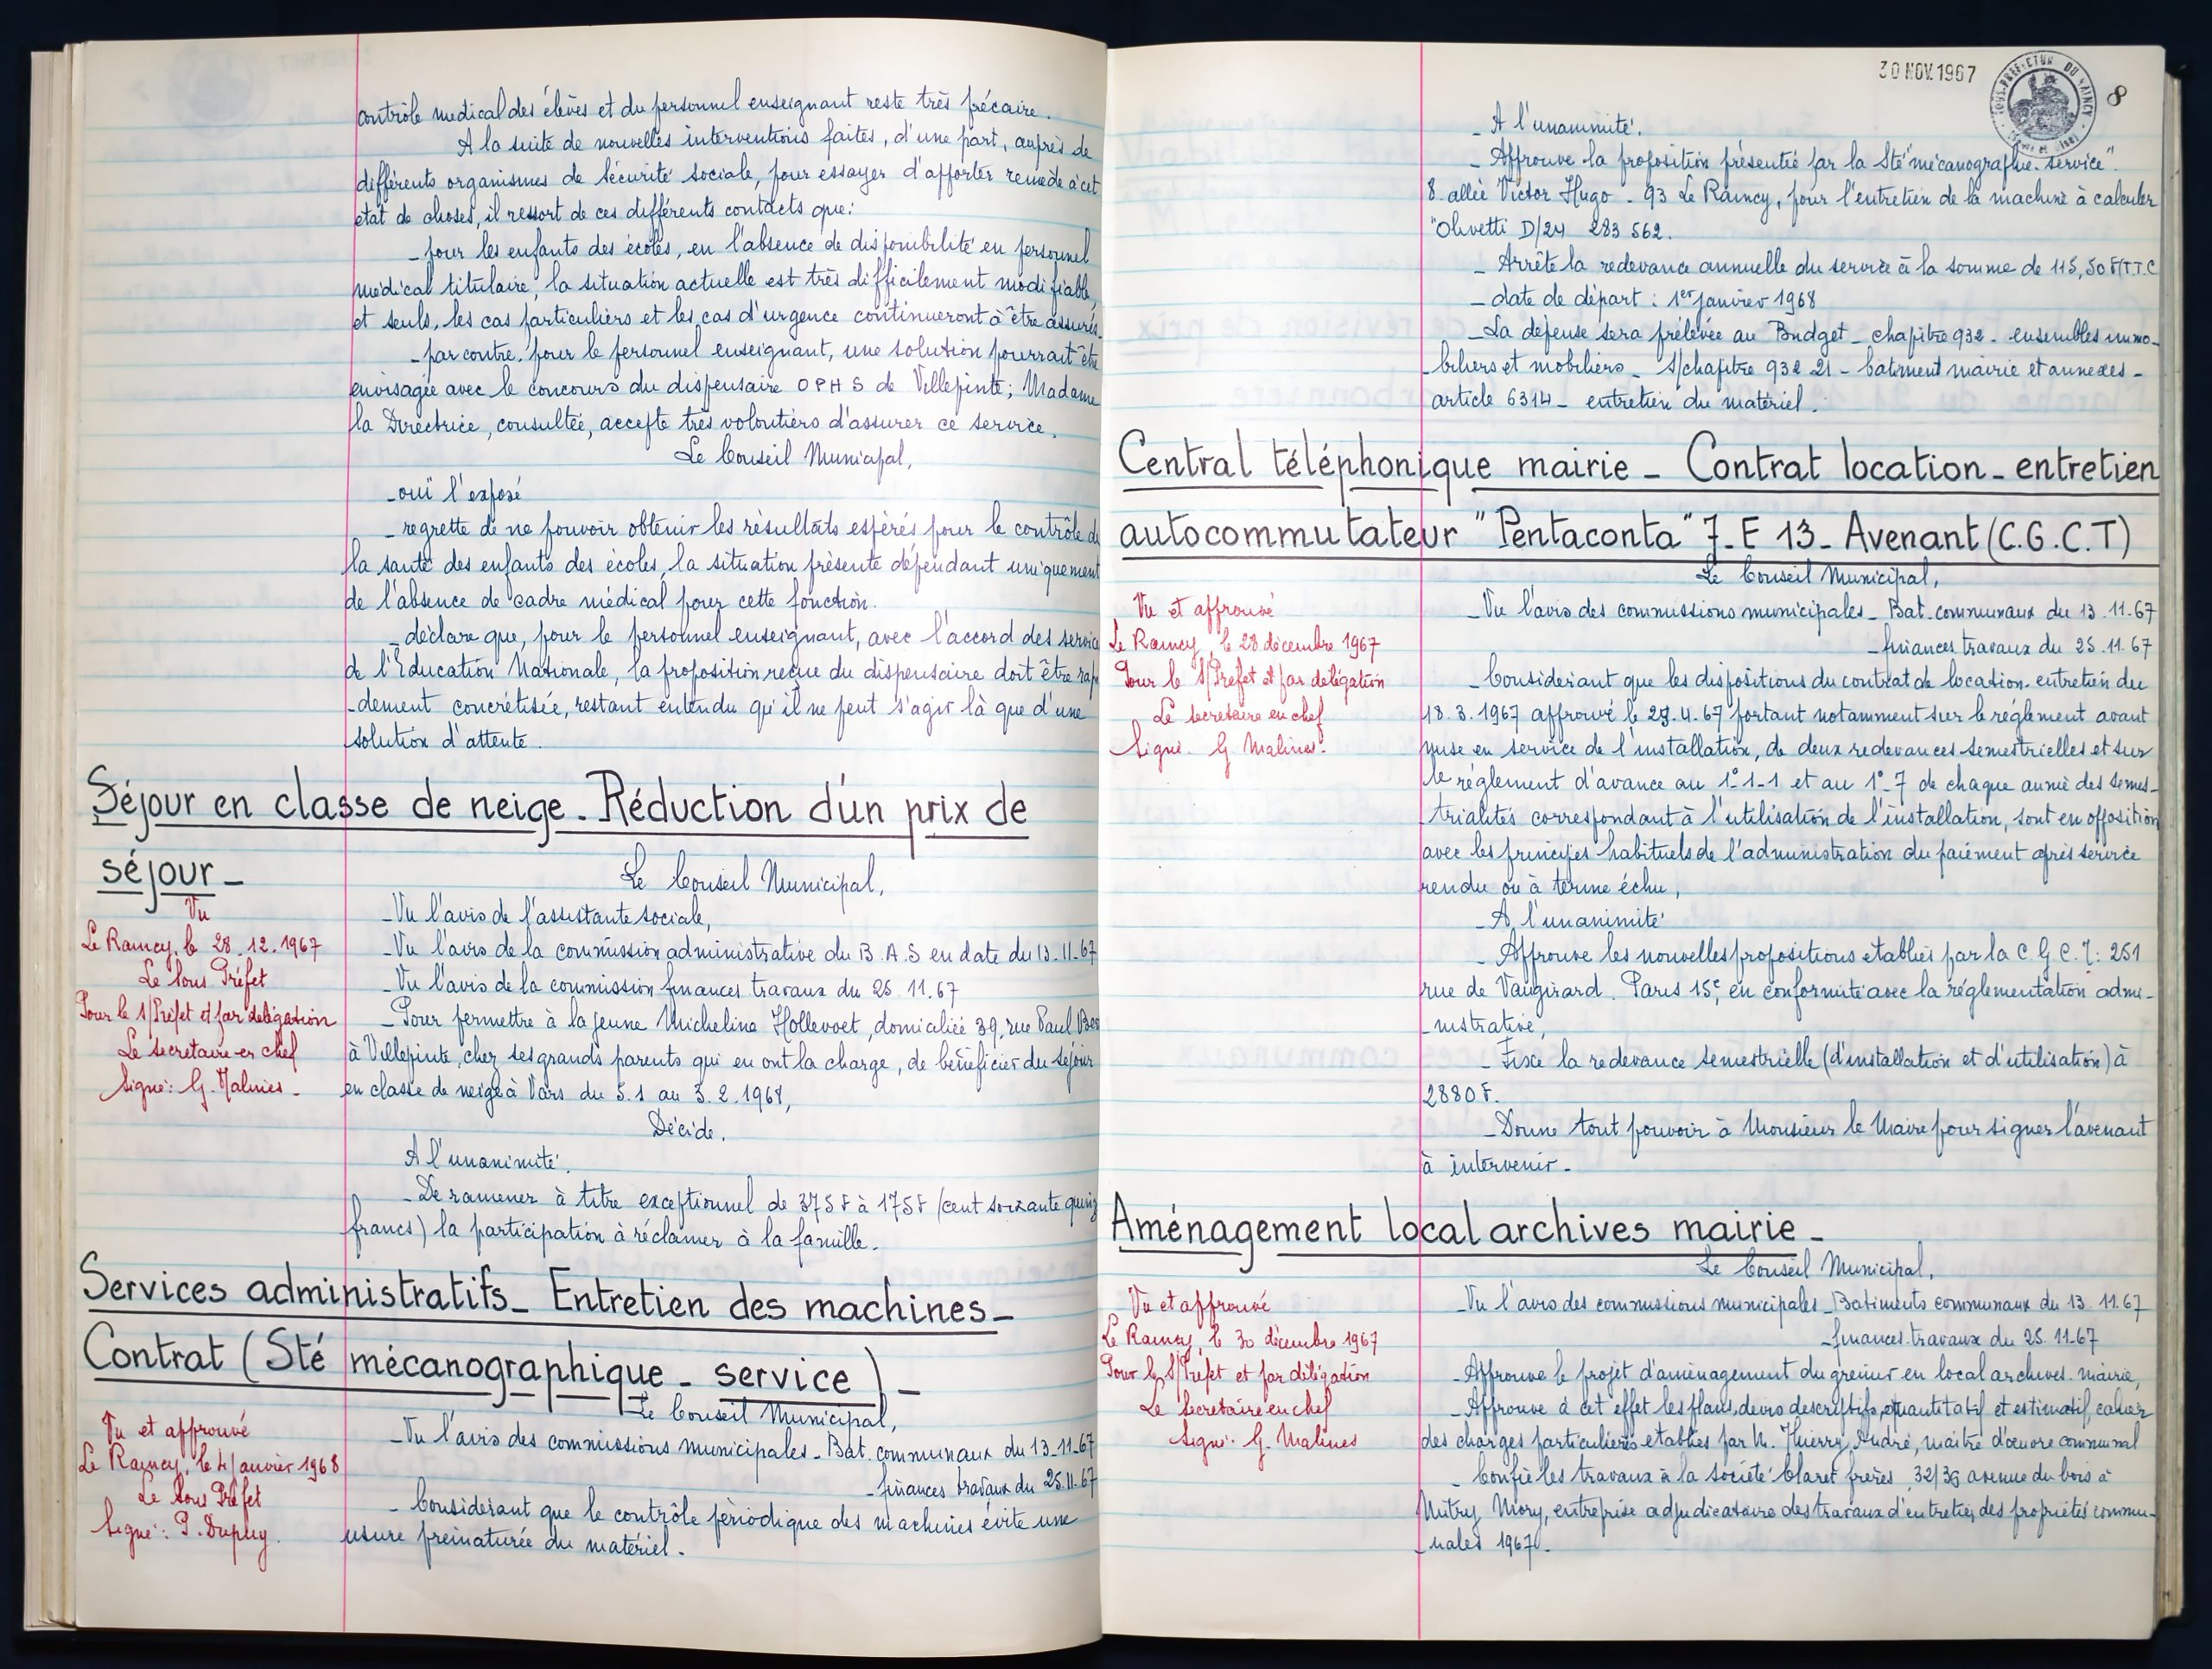 contrôle medical des élèves et du personnel enseignant reste très précaire.
A la suite de nouvelles interventions faites, d'une part, auprès de
différents organismes de sécurité sociale, pour essayer d'apporter remède à cet
état de choses, il ressort de ces différents contacts que:
_ pour les enfants des écoles, en l'absence de disponibilité en personnel
médical titulaire, la situation actuelle est très difficilement modifiable,
et seuls, les cas particuliers et les cas d'urgence continueront à être assurés.
_ par contre, pour le personnel enseignant, une solution pourrait être
envisagée avec le concours du dispensaire OPHS de Villepinte; Madame
la Directrice, consultée, accepte très volontiers d'assurer ce service.
Le Conseil Municipal,
_ ouï l'exposé
_ regrette de ne pouvoir obtenir les résultats espérés pour le contrôle de
la santé des enfants des écoles, la situation présente dépendant uniquement
de l'absence de cadre médical pour cette fonction.
_ déclare que, pour le personnel enseignant, avec l'accord des service
de l'Education Nationale, la proposition reçue du dispensaire doit être rapi
-dement concrétisée, restant entendu qu'il ne peut s'agir là que d'une
solution d'attente.
Séjour en classe de neige_Réduction d'un prix de
séjour_
Le Conseil Municipal,
Vu
Le Raincy, le 28.12.1967
Le Sous Préfet
Pour le S/Préfet et par délégation
Le secrétaire en chef
Signé: G. Malines.
_ Vu l'avis de l'assistante sociale,
_ Vu l'avis de la commission administrative du B.A.S en date du 13-11-67
_ Vu l'avis de la commission finances travaux du 25.11.67
_ Pour permettre à la jeune Micheline Hollevoet, domiciliée 39, rue Paul Ber
à Villepinte, chez ses grands parents qui en ont la charge, de bénéficier du séjour
en classe de neige à Vars du 5.1 au 3.2.1968,
Décide,
A l'unanimité,
_ De ramener à titre exceptionnel de 375F à 175F (cent soixante quinze
francs) la participation à réclamer à la famille.
Services administratifs_ Entretien des machines_
Contrat (Sté mécanographique_service)_
Le Conseil Municipal,
Vu et approuvé
Le Raincy, le 4 Janvier 1968
Le Sous Préfet
Signé: P. Dupuy.
_ Vu l'avis des commissions municipales_ Bat. communaux du 13-11-67
_ finances travaux du 25.11.67
_ Considérant que le contrôle périodique des machines évite une
usure prématurée du matériel.
30 NOV. 1967
SOUS-PREFECTURE DU RAINCY
8
_ A l'unanimité.
_ Approuve la proposition présentée par la Sté "mécanographie-service".
8. allée Victor Hugo. 93 Le Raincy, pour l'entretien de la machine à calculer
"Olivetti D/24 283 562.
_ Arrête la redevance annuelle du service à la somme de 115,50 F (T.T.C
_ date de départ: 1er janvier 1968
_ La dépense sera prélevée au Budget_ chapitre 932. ensembles immo-
-biliers et mobiliers_ S/chapitre 932 21_ batiment mairie et annexes_
article 6314_ entretien du matériel.
Central téléphonique mairie_ Contrat location_entretien
autocommutateur "Pentaconta" 7_E 13_ Avenant (C.G.C.T)
Le Conseil Municipal,
Vu et approuvé
Le Raincy, le 28 décembre 1967
Pour le S/Préfet et par délégation
Le Secrétaire en chef
Signé. G. Malines.
_ Vu l'avis des commissions municipales_ Bat. communaux du 13.11.67
_ finances travaux du 25.11.67
_ Considérant que les dispositions du contrat de location-entretien du
18.3.1967 approuvé le 27.4.67 portant notamment sur le réglement avant
mise en service de l'installation, de deux redevances semestrielles et sur
le réglement d'avance au 1°-1-1 et au 1°-7 de chaque année des semes-
-trialités correspondant à l'utilisation de l'installation, sont en opposition
avec les principes habituels de l'administration du paiement après service
rendu ou à terme échu,
_ A l'unanimité
_ Approuve les nouvelles propositions établies par la C.G.C.T: 251
rue de Vaugirard. Paris 15e, en conformité avec la réglementation admi-
-nistrative,
_ Fixe la redevance semestrielle (d'installation et d'utilisation) à
2880 F.
_ Donne tout pouvoir à Monsieur le Maire pour signer l'avenant
à intervenir_
Aménagement local archives mairie_
Le Conseil Municipal,
Vu et approuvé
Le Raincy, le 30 décembre 1967
Pour le S/Préfet et par délégation
Le Secrétaire en chef
Signé. G. Malines
_ Vu l'avis des commissions municipales_ Batiments communaux du 13.11.67
_ finances travaux du 25.11.67
_ Approuve le projet d'aménagement du grenier en local archives mairie,
_ Approuve à cet effet les plans, devis descriptifs, quantitatif et estimatif, cahier
des charges particulières établies par M. Thierry André, maître d'oeuvre communal
_ Confie les travaux à la société Claret frères, 32/36 avenue du bois à
Mitry Mory, entreprise adjudicataire des travaux d'entretien des propriétés commu-
-nales 1967.